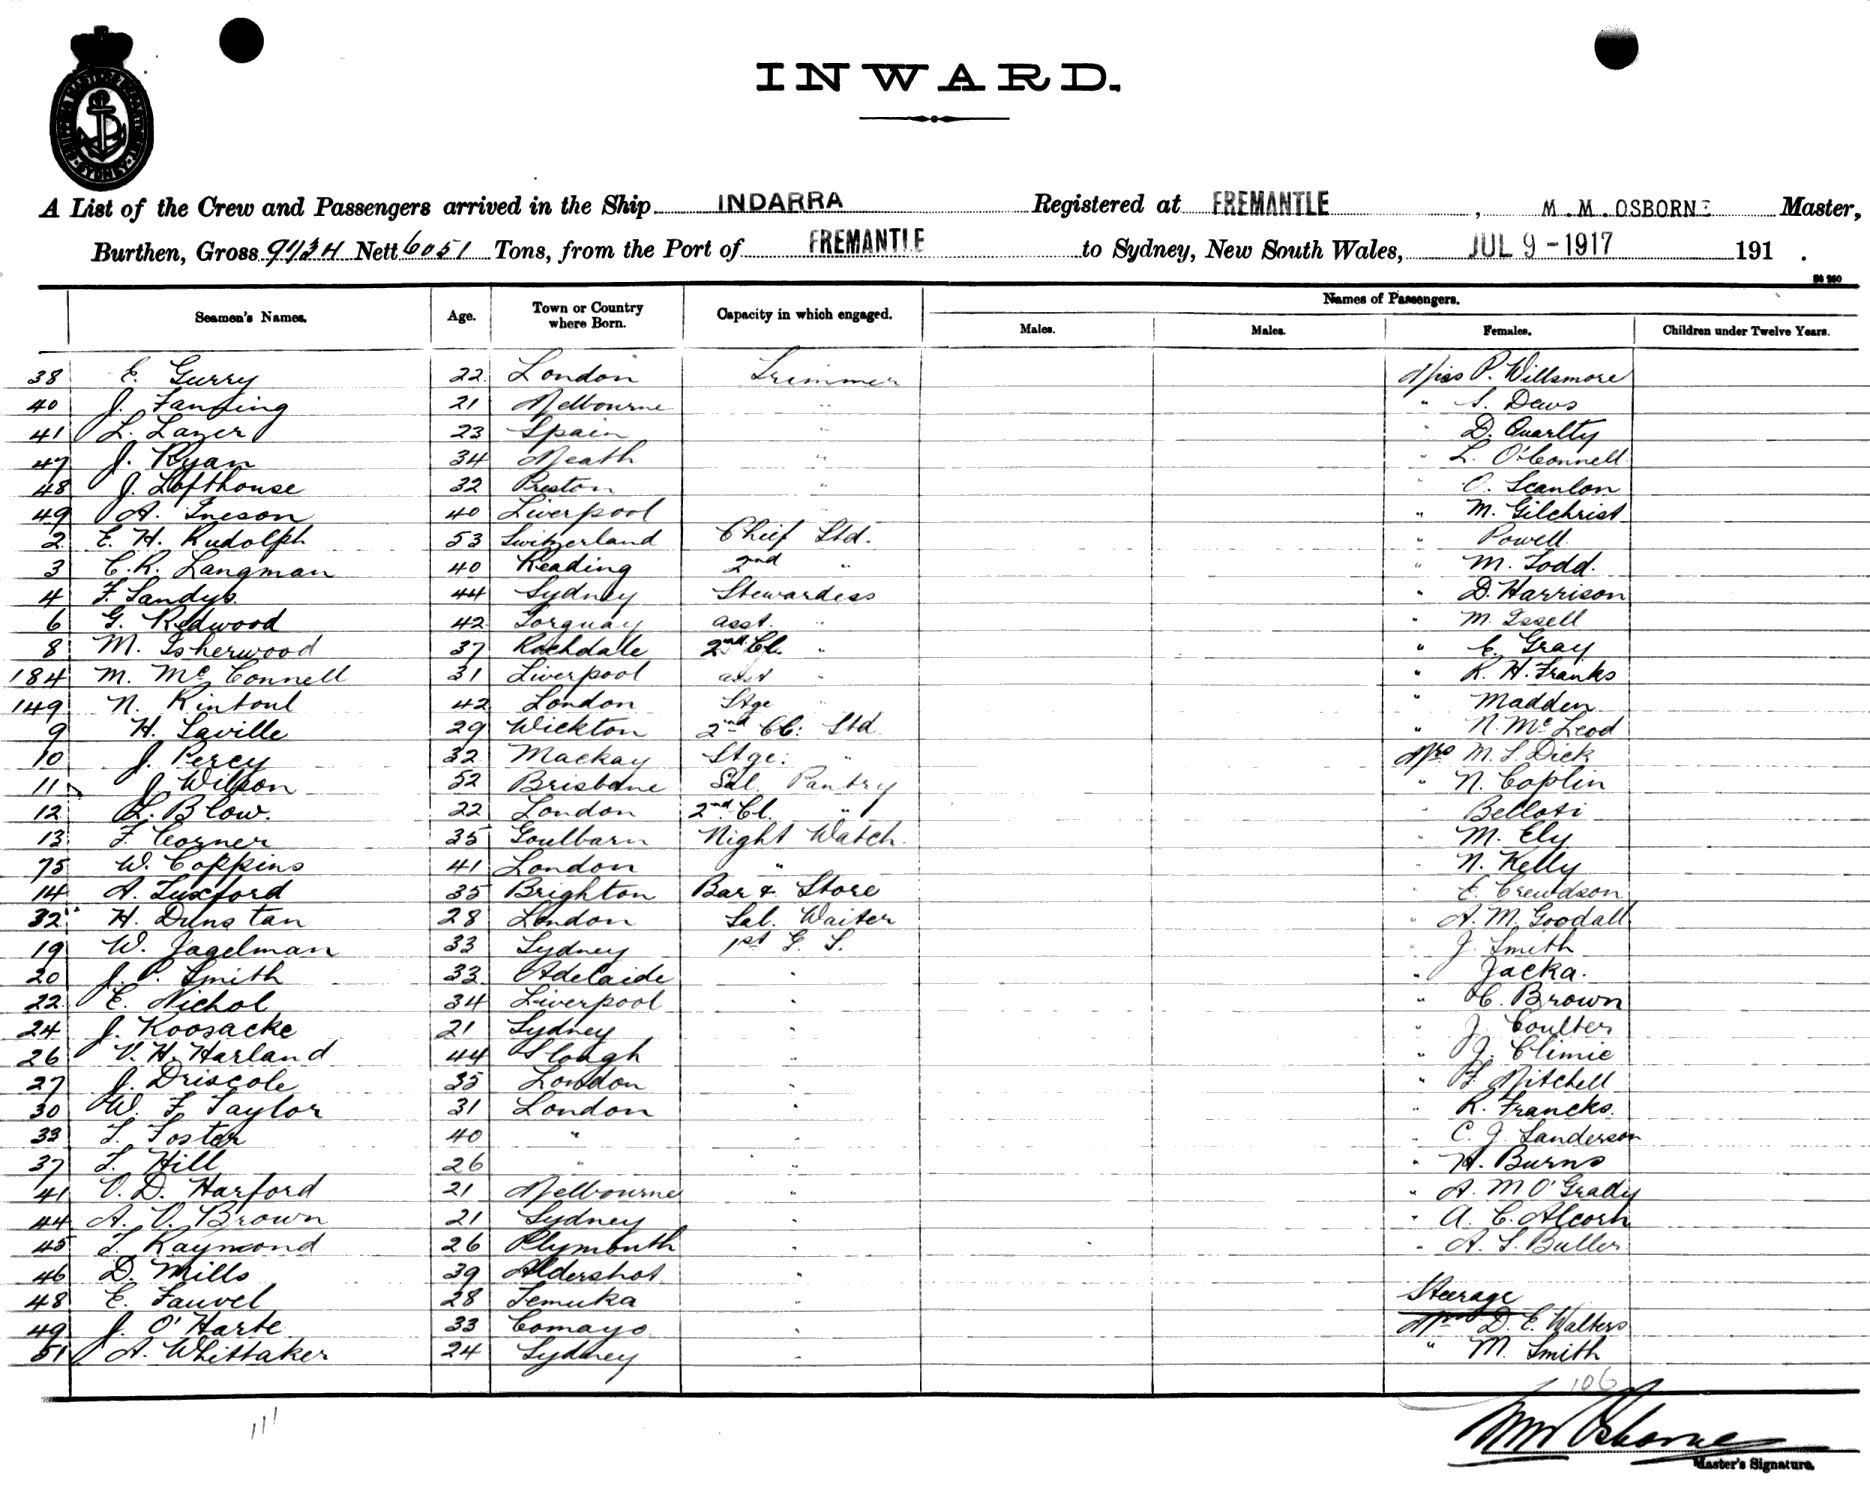 INWARD.
A List of the Crew and Passengers arrived in the Ship INDARRA Registered at FREMANTLE , M.M.OSBORNE Master,
Burthen, Gross Nett 6051 Tons, from the Port of FREMANTLE to Sydney, New South Wales, JUL 9 - 1917 191 .
Names of Passengers.
Seamen's Names. Age. Town or Country where Born. Capacity in which engaged. Males. Males. Females. Children under Twelve Years.
38 E. Gurry 22 London Trimmer Miss P. Willsmore
40 J. Fanning 21 Melbourne " " S. Dews
41 L. Lazer 23 Spain " " D. Quarlty
47 J. Ryan 34 Meath " " L. O'Connell
48 J. Lofthouse 32 Preston " " O. Scanlon
49 A. Ineson 40 Liverpool " M. Gilchrist
2 E. H. Rudolph 53 Switzerland Chief Std. " Powell
3 C. R. Langman 40 Reading 2nd " " M. Todd.
4 F. Sandys 44 Sydney Stewardess " D. Harrison
6 G. Redwood 42 Torquay asst. " " M. Issell
8 M. Isherwood 37 Rochdale 2nd Cl. " " E. Gray
184 M. McConnell 31 Liverpool asst " " R. H. Franks
149 N. Rintoul 42 London Stge " " Madden
9 H. Saville 29 Wickton 2nd Cl: Std. " N. McLeod
10 J. Percy 32 Mackay Stge: " Mrs M. S. Dick
11 J. Wilson 52 Brisbane Sal. Pantry " N. Coplin
12 L. Blow. 22 London 2nd Cl. " " Belloti
13 F. Corner 35 Goulbarn Night Watch. " M. Ely
75 W. Coppins 41 London " " N. Kelly
14 A. Luxford 35 Brighton Bar & Store " E. Crewdson
32 H. Dunstan 28 London Sal. Waiter " A. M. Goodall
19 W. Jagelman 33 Sydney 1st G. S. " J. Smith
20 J. P. Smith 33 Adelaide " " Jacka.
22 E. Nichol 34 Liverpool " " C. Brown
24 J. Koosacke 21 Sydney " " J. Coulter
26 V. H. Harland 44 Slough " " J. Climie
27 J. Driscole 35 London " " F. Mitchell
30 W. F. Taylor 31 London " " R. Francks.
33 T. Foster 40 " " " C. J. Sanderson
37 T. Hill 26 " " " H. Burns
41 V. D. Harford 21 Melbourne " " A. M O'Grady
44 A. V. Brown 21 Sydney " " A. C. Alcorn
45 T. Raymond 26 Plymouth " " A. S. Buller
46 D. Mills 39 Aldershot "
48 E. Fauvel 28 Temuka " Steerage
49 J. O'Harte 33 Comayo " Mrs D. E. Walters
51 A. Whittaker 24 Sydney " " M. Smith
106
MM Osborne
Master's Signature.